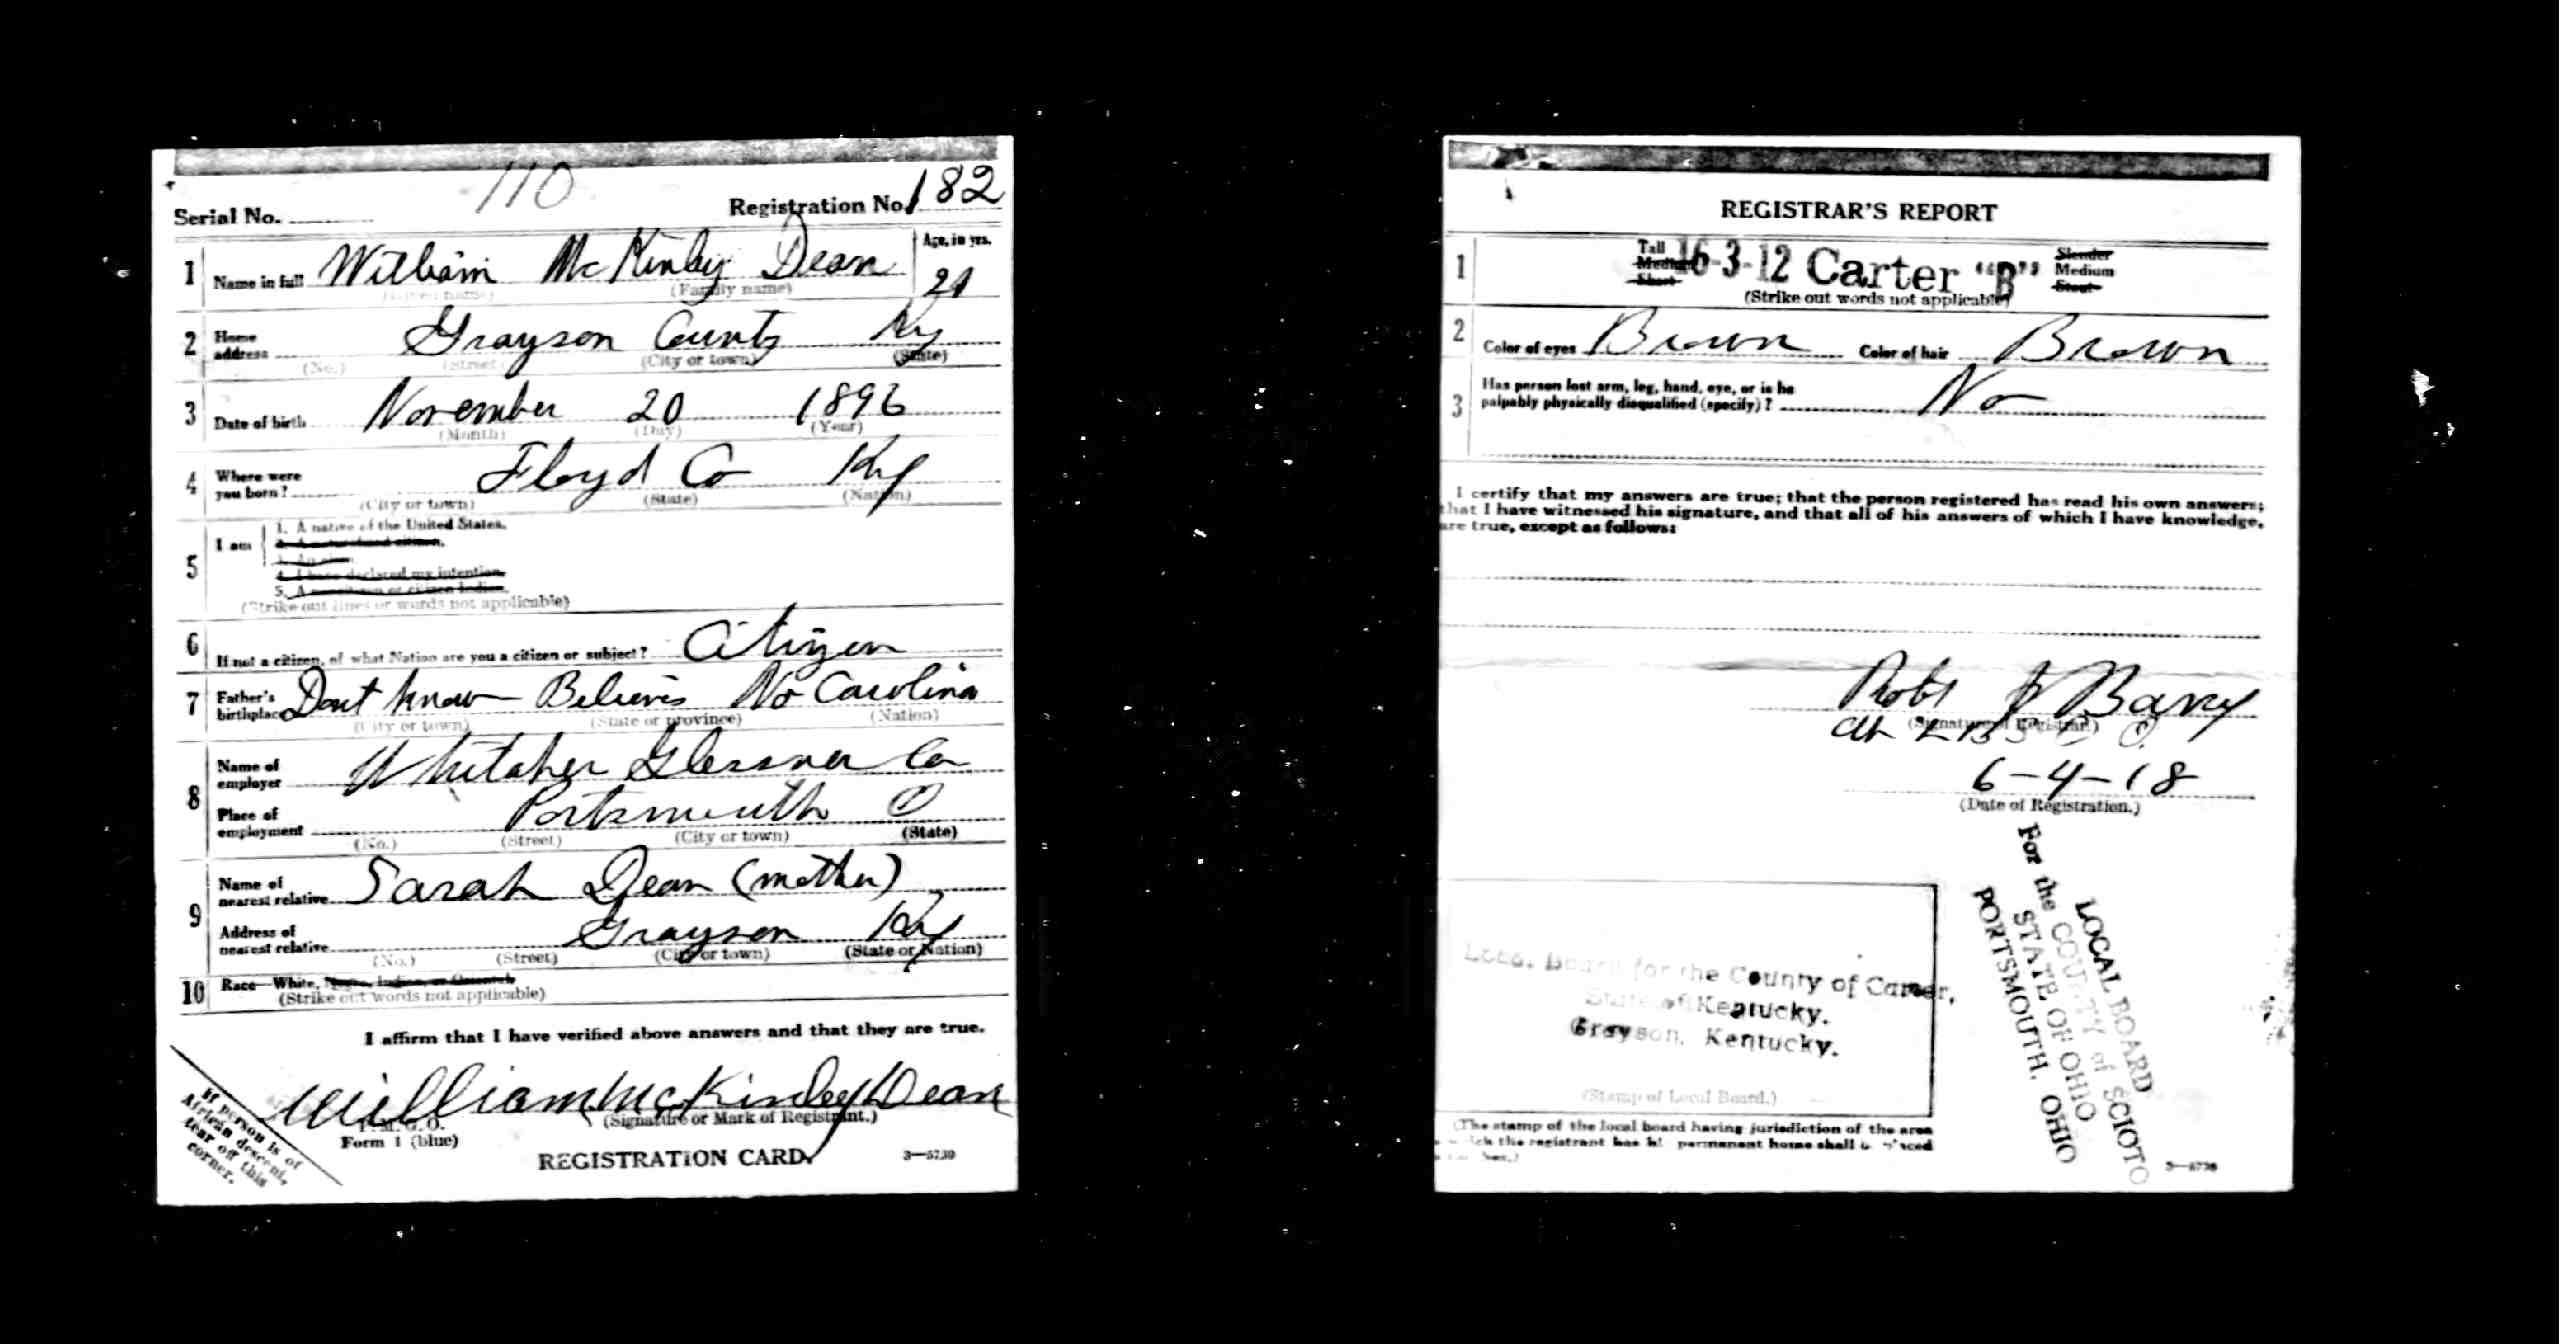 110
Serial No. Registration No. 182
1 Name in full William McKinley Dean Age, in yrs. 21
(Given name) (Family name)
2 Home address Grayson County Ky
(No.) (Street) (City or town) (State)
3 Date of birth November 20 1896
(Month) (Day) (Year)
4 Where were you born? Floyd Co Ky
(City or town) (State) (Nation)
5 I am
1. A native of the United States.
2. A naturalized citizen.
3. An alien.
4. I have declared my intention.
5. A noncitizen or citizen Indian.
(Strike out lines or words not applicable)
6 If not a citizen, of what Nation are you a citizen or subject? Citizen
7 Father's birthplace Dont know Believes No Carolina
(City or town) (State or province) (Nation)
8 Name of employer Whitaker Glessner Co
Place of employment Portsmouth O
(No.) (Street) (City or town) (State)
9 Name of nearest relative Sarah Dean (mother)
Address of nearest relative Grayson Ky
(No.) (Street) (City or town) (State or Nation)
10 Race—White, Negro, Indian, or Oriental
(Strike out words not applicable)
I affirm that I have verified above answers and that they are true.
William McKinley Dean
(Signature or Mark of Registrant.)
P.M.G.O.
Form 1 (blue)
REGISTRATION CARD. 3—5739
If person is of
African descent,
tear off this
corner.
REGISTRAR'S REPORT
1 Tall Medium Short 16-3-12 Carter "B" Slender Medium Stout
(Strike out words not applicable)
2 Color of eyes Brown Color of hair Brown
3 Has person lost arm, leg, hand, eye, or is he
palpably physically disqualified (specify)? No
I certify that my answers are true; that the person registered has read his own answers;
that I have witnessed his signature, and that all of his answers of which I have knowledge,
are true, except as follows:
Robt Barry
(Signature of Registrar.)
6-4-18
(Date of Registration.)
LOCAL BOARD
For the COUNTY of SCIOTO
STATE OF OHIO
PORTSMOUTH, OHIO
Local Board for the County of Carter,
State of Kentucky.
Grayson, Kentucky.
(Stamp of Local Board.)
(The stamp of the local board having jurisdiction of the area
which the registrant has his permanent home shall be placed
box.)